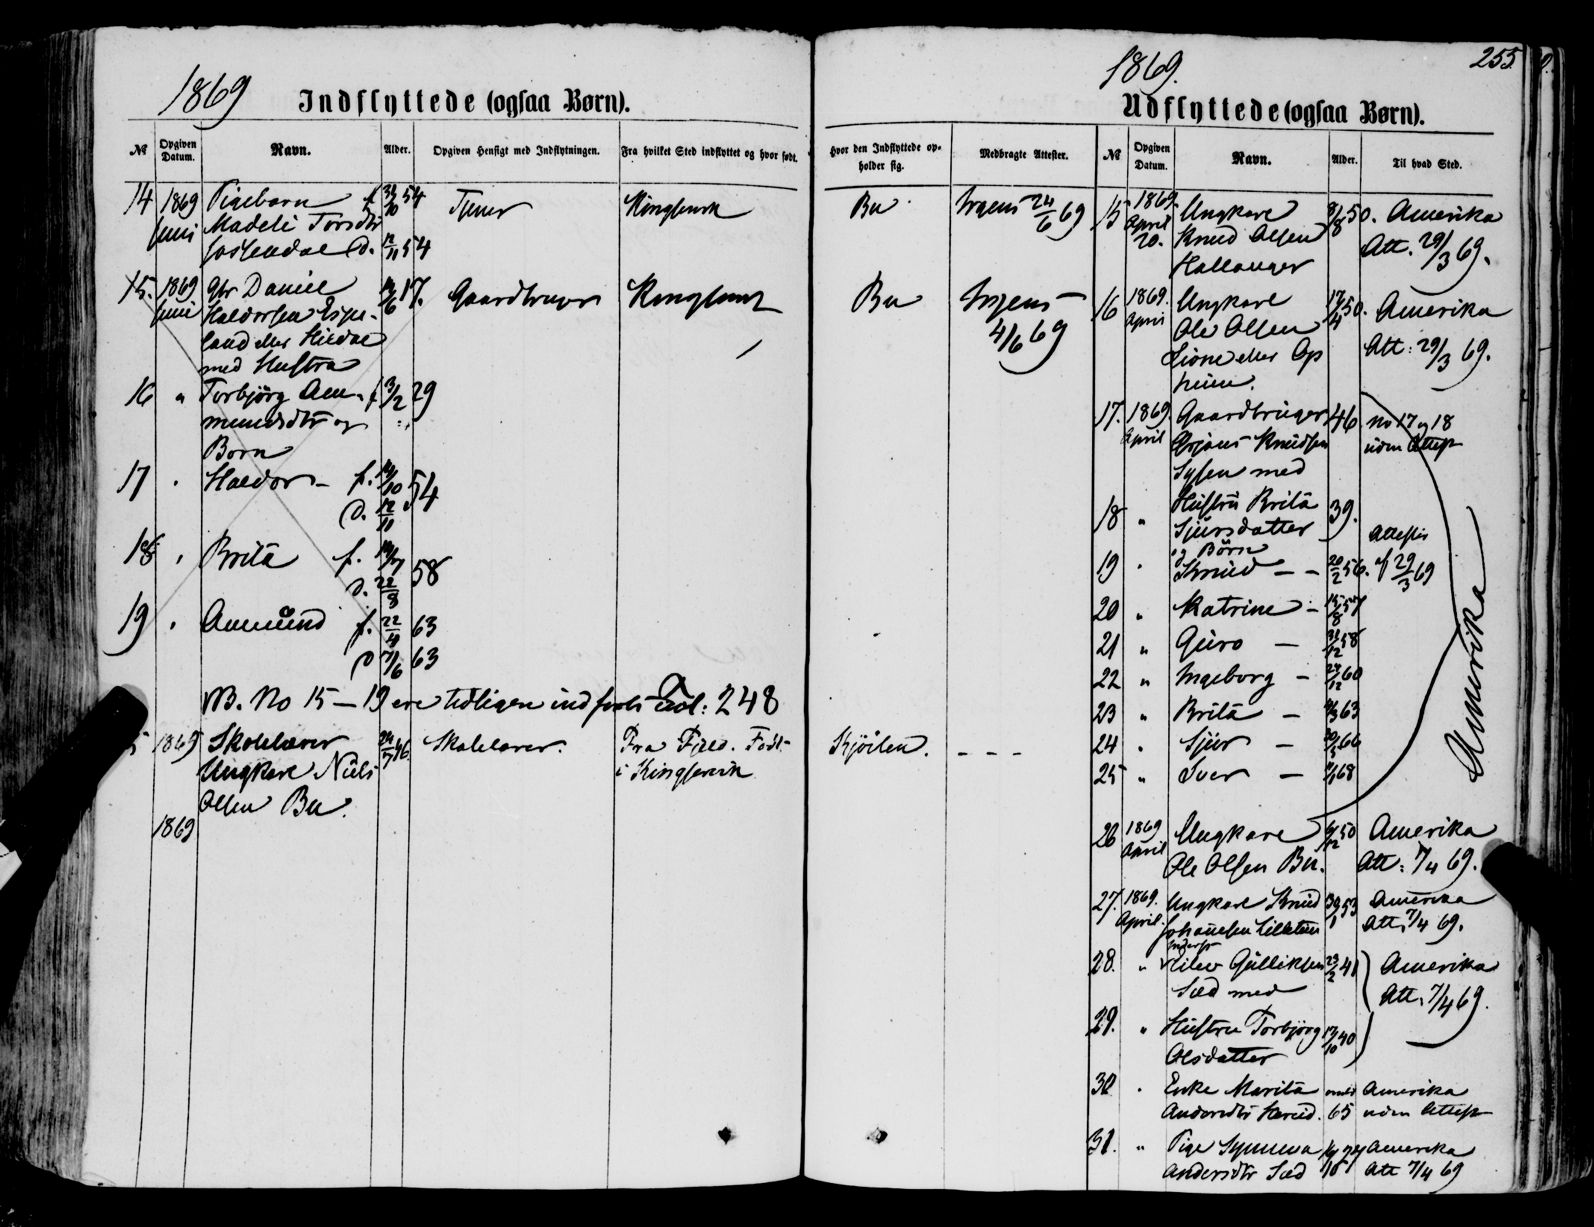 1869
Indflyttede (ogsaa Børn).
№ Opgiven Datum. Navn. Alder. Opgiven Hensigt med Indflytningen. Fra hvilket Sted indflyttet og hvor født.
14 1869 Pigebarn f 54 Tjener Kingservik
Juni Madeli Torsdtr
d. 12/11 54
15. 1869 Daniel 17. Gaardbruger Kingservik
Juni Haldorsen Espe-
land eller
med Hustru
16 " Torbjörg Am- f 3/2 29
mundsdtr og
Börn
17 Haldor - f. 54
d. 12/11
18 Brita f. 58
d. 22/8
19 Amund f. 22/4 63
d 7/6 63
NB. No 15 - 19 ere tidligere indförte Fol: 248
1869 Skolelærer 46 Skolelærer. Fra Fjeld. Födt
Ungkarl Niels i Kingservik
Olsen Bu.
1869
1869. 255
Udflyttede (ogsaa Børn).
Hvor den Indflyttede opholder sig. Medbragte Attester. № Opgiven Datum. Navn. Alder. Til hvad Sted.
Bu 24/6 69 15 1869. Ungkarl 50. Amerika
April Knud Olsen Att. 29/3 69.
20. Hallanger
Bu 4/6 69 16 1869. Ungkarl 17/4 50. Amerika
April Ole Olsen Att: 29/3 69.
Lione eller Op
heim.
17. 1869 Gaardbruger 46 No 17 og 18
April Knudsen uden Attest
Sysen med
18 " Hustru Brita 39.
Sjursdatter Attester
og Börn
19 " Knud - - 20/2 56. af 29/3 69
20 " Katrine - 15/8 57
21 " Guro - 31/12 58
22 " Ingeborg - 27/12 60
23 " Brita - 63
24 " Sjur - 66
25 " Iver - 68
Amerika
26 1869 Ungkarl 50 Amerika
April Ole Olsen Bu. Att: 7/4 69.
27. 1869. Ungkarl Knud 53 Amerika
April. Johannesen Lilletun Att. 7/4 69.
28. " Gulliksen 23/2 41 Amerika
Sæd med Att. 7/4 69.
29. " Hustru Torbjörg 40
Olsdatter
30 " Enke Marita Amerika
Andersdtr 65 uden Attest
31. " Pige Synneva Amerika
Andersdtr Sæd Att 7/4 69